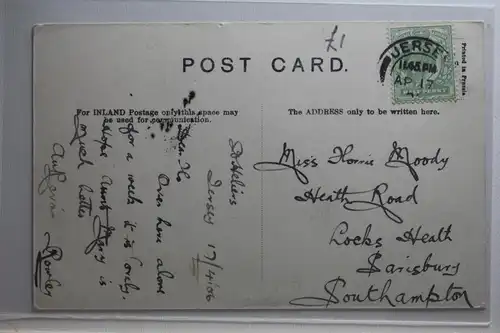 £1
POST CARD.
JERSEY
11.45 PM
AP 17
Printed in Prussia
For INLAND Postage only this space may
be used for communication.
The ADDRESS only to be written here.
St Heliers
Jersey 17/4/06
Over here alone
for a week it is lovely.
Hope Aunt Mary is
much better
Miss Florrie Moody
Heath Road
Locks Heath
Sarisbury
Southampton